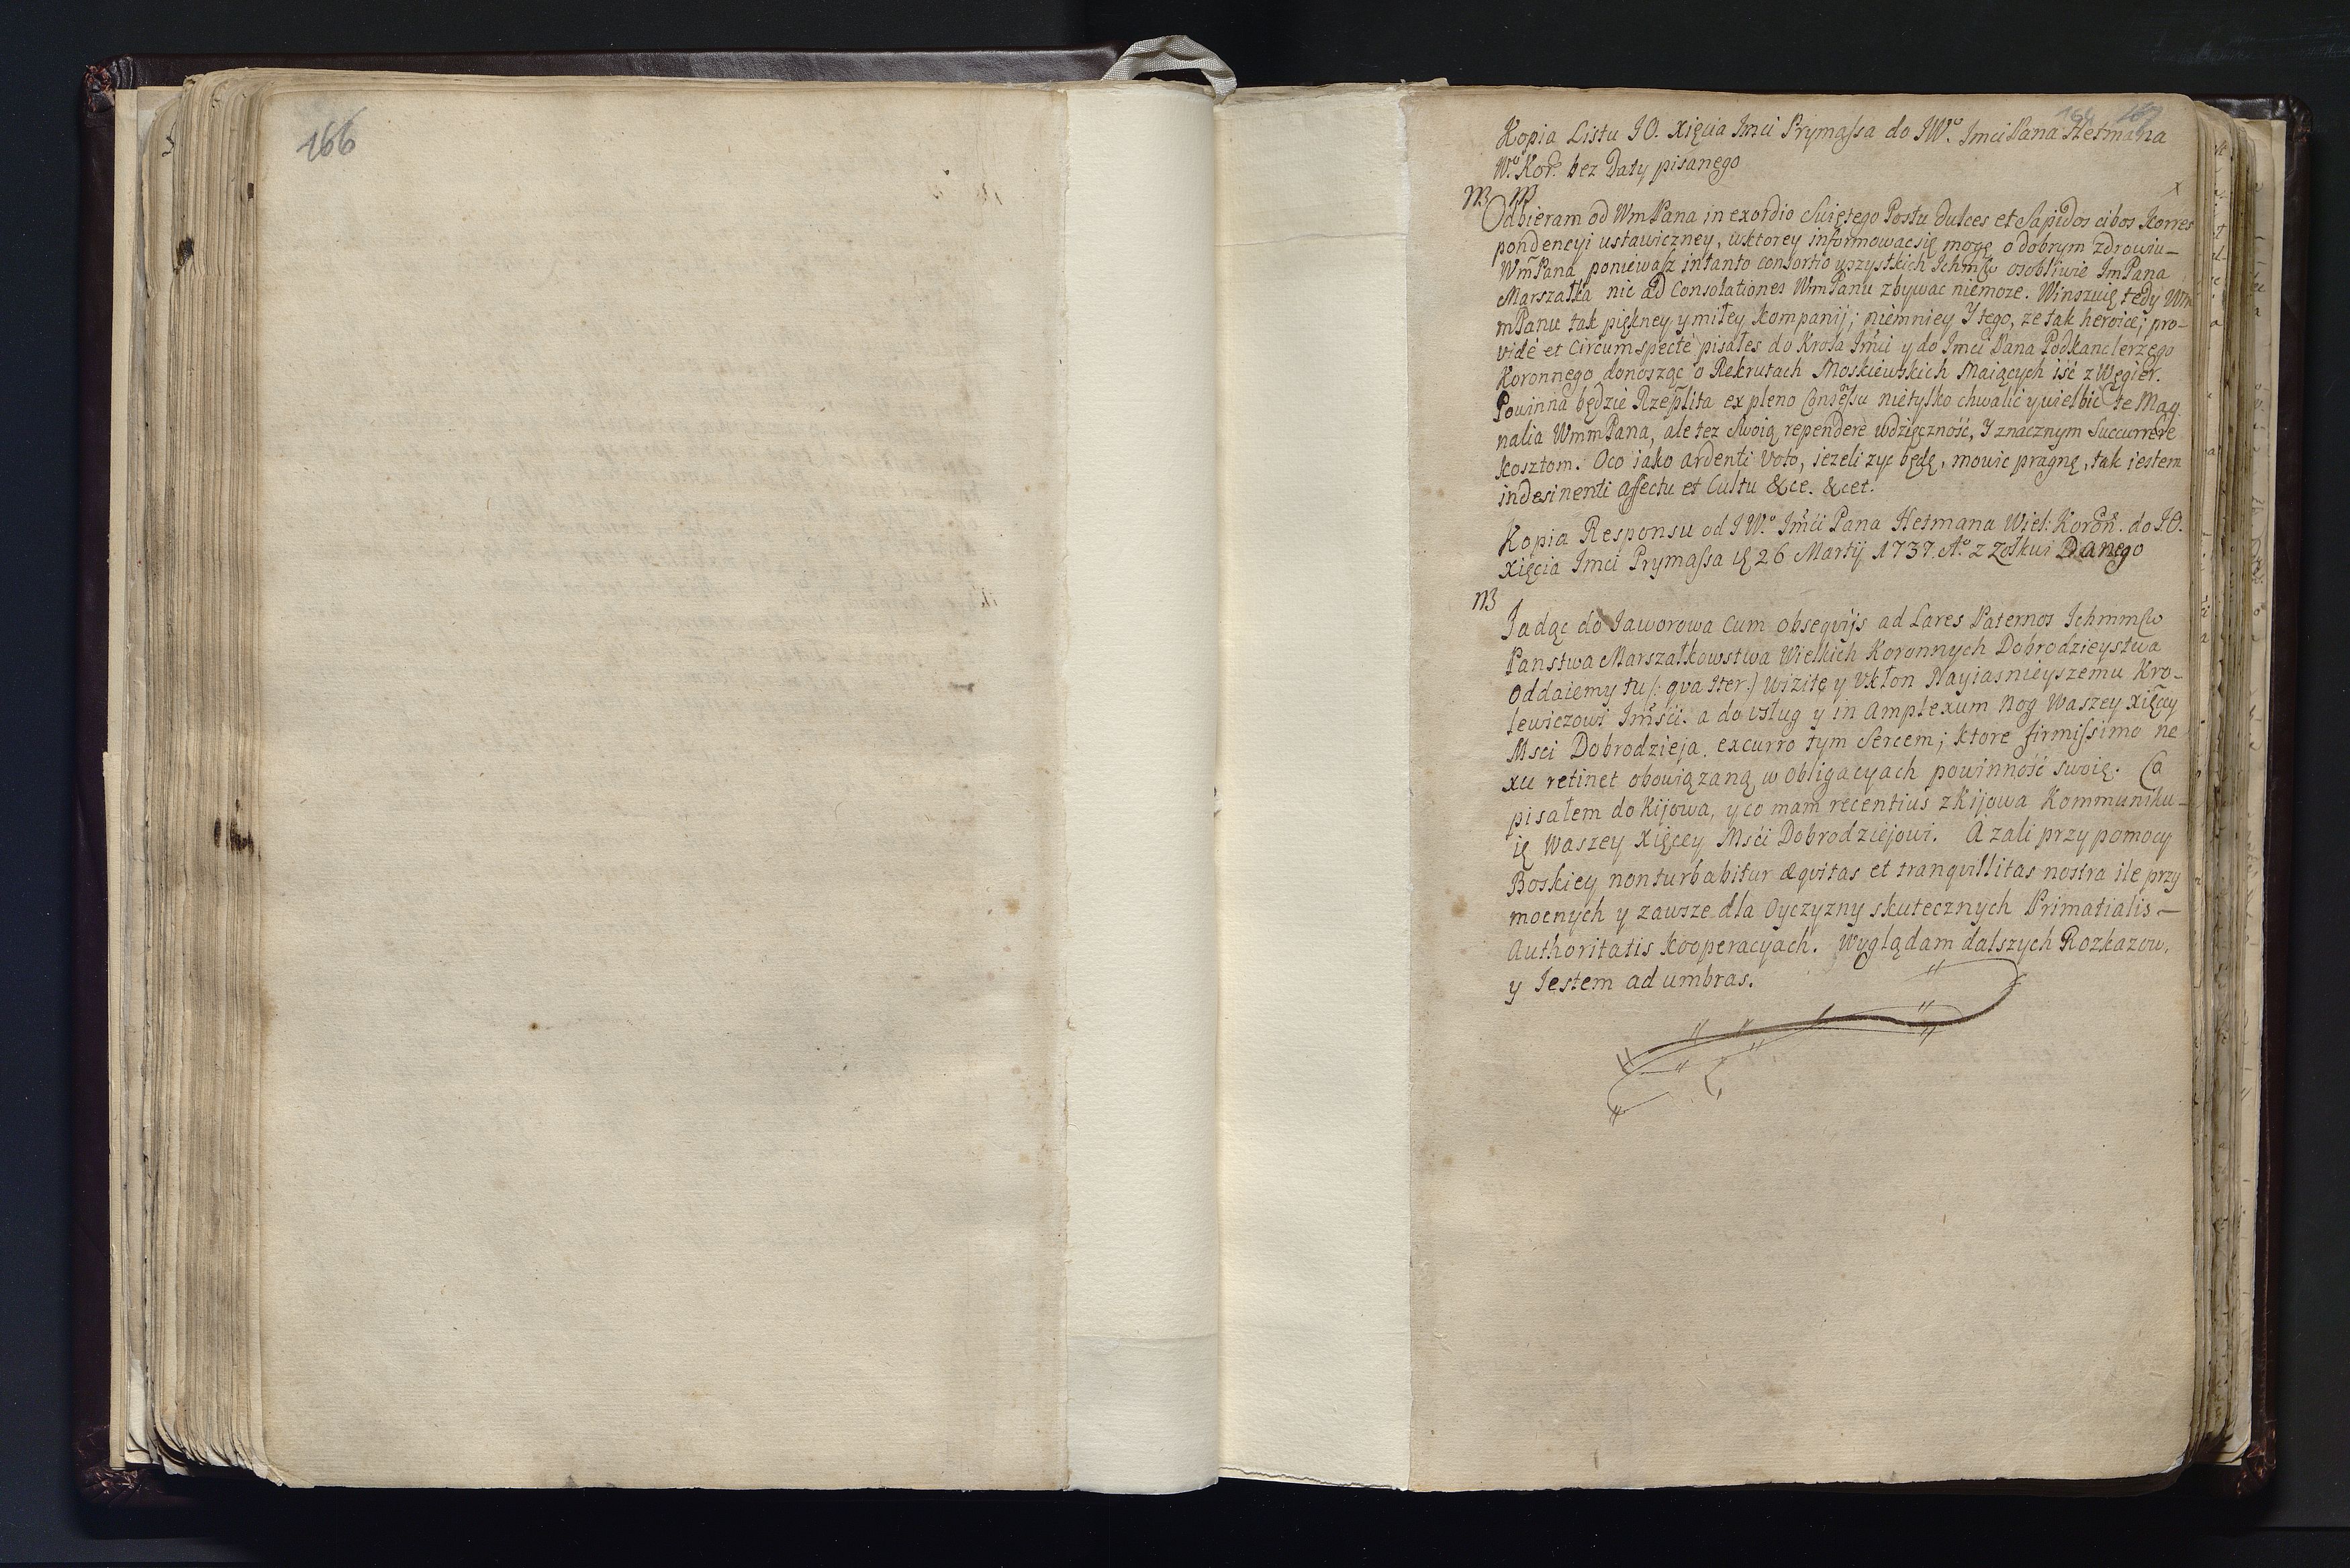 166
167
Kopia Listu JO. Xięcia Imci Prymassa do JWº. Imci Pana Hetmana
Wº. Kor. bez Daty pisanego
Odbieram od Wm Pana in exordio Swiętego Postu dulces et Sapidos cibos Korres
pondencyi ustawiczney, wktorey informowacsię mogę o dobrym zdrowiu
Wm Pana poniewasz intanto consortio wszystkich Ichmsw osobliwie Im Pana
Marszałka nic ad Consolationes Wm Panu zbywac niemoze. Winszuię tedy Wm
mPanu tak piękney y miłey kompanij; niemniey Y tego, ze tak heroice; pro-
vide et Circumspecte pisałes do Krola Imci y do Imci Pana Podkanclerzego
Koronnego donosząc o Rekrutach Moskiewskich Maiących iść z Węgier.
Powinna będzie Rzeplita ex pleno Consessu nietylko chwalić y wielbić te Mag
nalia WmmPana, ale tez Swoią rependere wdzięczność, Y znacznym Succurrere
kosztom. Oco iako ardenti Voto, iezeli zyc będę, mowic pragnę, tak iestem
indesinenti affectu et Cultu &ce. &cet.
Kopia Responsu od JWº Imći Pana Hetmana Wiel: Koron. do JO.
Xięcia Imci Prymassa 26 Martij 1737. Aº. z Zołkwi Danego
Jadąc do Jaworowa cum obseqvijs ad Lares Paternos Ichmmsw
Panstwa Marszałkowstwa Wielkich Koronnych Dobrodzieystwa
Oddaiemy tu /: qva Iter.) wizitę y Vkłon Nayiasnieyszemu Kro-
lewiczowi Imści. a do Vsług y in Amplexum Nog Waszey Xięcey
Msci Dobrodzieja. excurro tym Sercem; ktore firmissimo ne
xu retinet obowiązaną w obligacyach powinność swoię. Co
pisałem do Kijowa, y co mam recentius z Kijowa Kommuniku-
ię Waszey Xięcey Mści Dobrodziejowi. Azali przy pomocy
Boskiey non turbabitur æqvitas et tranqvillitas nostra ile przy
mocnych y zawsze dla Oyczyzny skutecznych Primatialis
Authoritatis kooperacyach. Wyglądam dalszych Rozkazow,
y Jestem ad umbras.